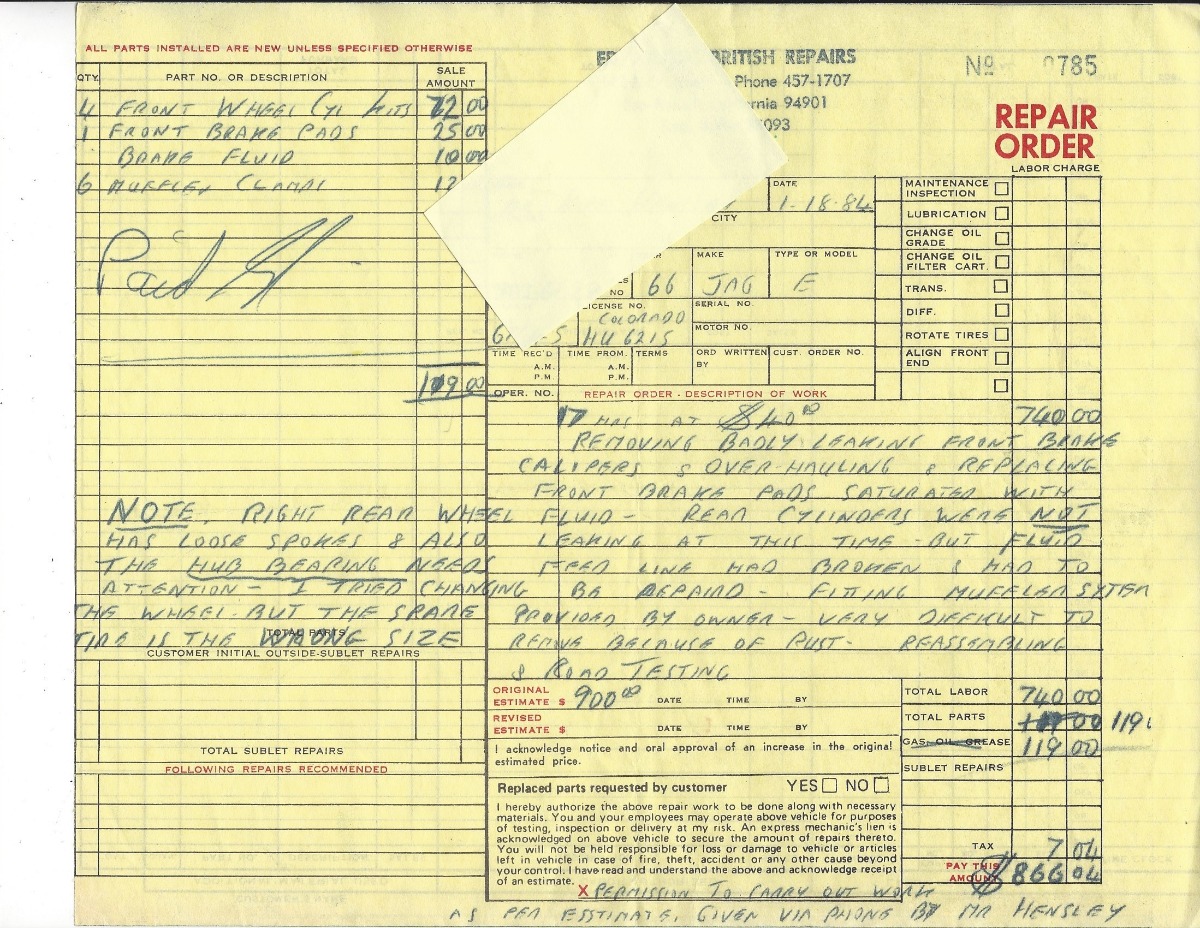 ALL PARTS INSTALLED ARE NEW UNLESS SPECIFIED OTHERWISE
QTY. PART NO. OR DESCRIPTION SALE AMOUNT
4 FRONT WHEEL CYL KITS 72 00
1 FRONT BRAKE PADS 25 00
BRAKE FLUID 10 00
6 MUFFLER CLAMPS 12
Paid
119 00
NOTE. RIGHT REAR WHEEL
HAS LOOSE SPOKES & ALSO
THE HUB BEARING NEEDS
ATTENTION - I TRIED CHANGING
THE WHEEL BUT THE SPARE
TIRE IS THE WRONG SIZE
TOTAL PARTS
CUSTOMER INITIAL OUTSIDE-SUBLET REPAIRS
TOTAL SUBLET REPAIRS
FOLLOWING REPAIRS RECOMMENDED
BRITISH REPAIRS
Phone 457-1707
94901
093
No 785
REPAIR
ORDER
LABOR CHARGE
DATE
1-18-84
CITY
MAKE TYPE OR MODEL
NO 66 JAG E
LICENSE NO. SERIAL NO.
COLORADO
HU 6215 MOTOR NO.
TIME REC'D TIME PROM. TERMS ORD WRITTEN BY CUST. ORDER NO.
A.M. A.M.
P.M. P.M.
MAINTENANCE INSPECTION
LUBRICATION
CHANGE OIL GRADE
CHANGE OIL FILTER CART.
TRANS.
DIFF.
ROTATE TIRES
ALIGN FRONT END
OPER. NO. REPAIR ORDER - DESCRIPTION OF WORK
17 HRS AT $40 00 740 00
REMOVING BADLY LEAKING FRONT BRAKE
CALIPERS & OVER-HAULING & REPLACING
FRONT BRAKE PADS SATURATED WITH
FLUID - REAR CYLINDERS WERE NOT
LEAKING AT THIS TIME - BUT FLUID
FEED LINE HAD BROKEN & HAD TO
BE REPAIRD - FITTING MUFFLER SYTEM
PROVIDED BY OWNER - VERY DIFFICULT TO
REMOVE BECAUSE OF RUST - REASSEMBLING
& ROAD TESTING
ORIGINAL ESTIMATE $ 900 00 DATE TIME BY
REVISED ESTIMATE $ DATE TIME BY
I acknowledge notice and oral approval of an increase in the original
estimated price.
Replaced parts requested by customer YES NO
I hereby authorize the above repair work to be done along with necessary
materials. You and your employees may operate above vehicle for purposes
of testing, inspection or delivery at my risk. An express mechanic's lien is
acknowledged on above vehicle to secure the amount of repairs thereto.
You will not be held responsible for loss or damage to vehicle or articles
left in vehicle in case of fire, theft, accident or any other cause beyond
your control. I have read and understand the above and acknowledge receipt
of an estimate.
TOTAL LABOR 740 00
TOTAL PARTS 119
GAS- OIL- GREASE 119 00
SUBLET REPAIRS
TAX 7 04
PAY THIS AMOUNT $866 04
X PERMISSION TO CARRY OUT WORK
AS PER ESSTIMATE, GIVEN VIA PHONE BY MR HENSLEY